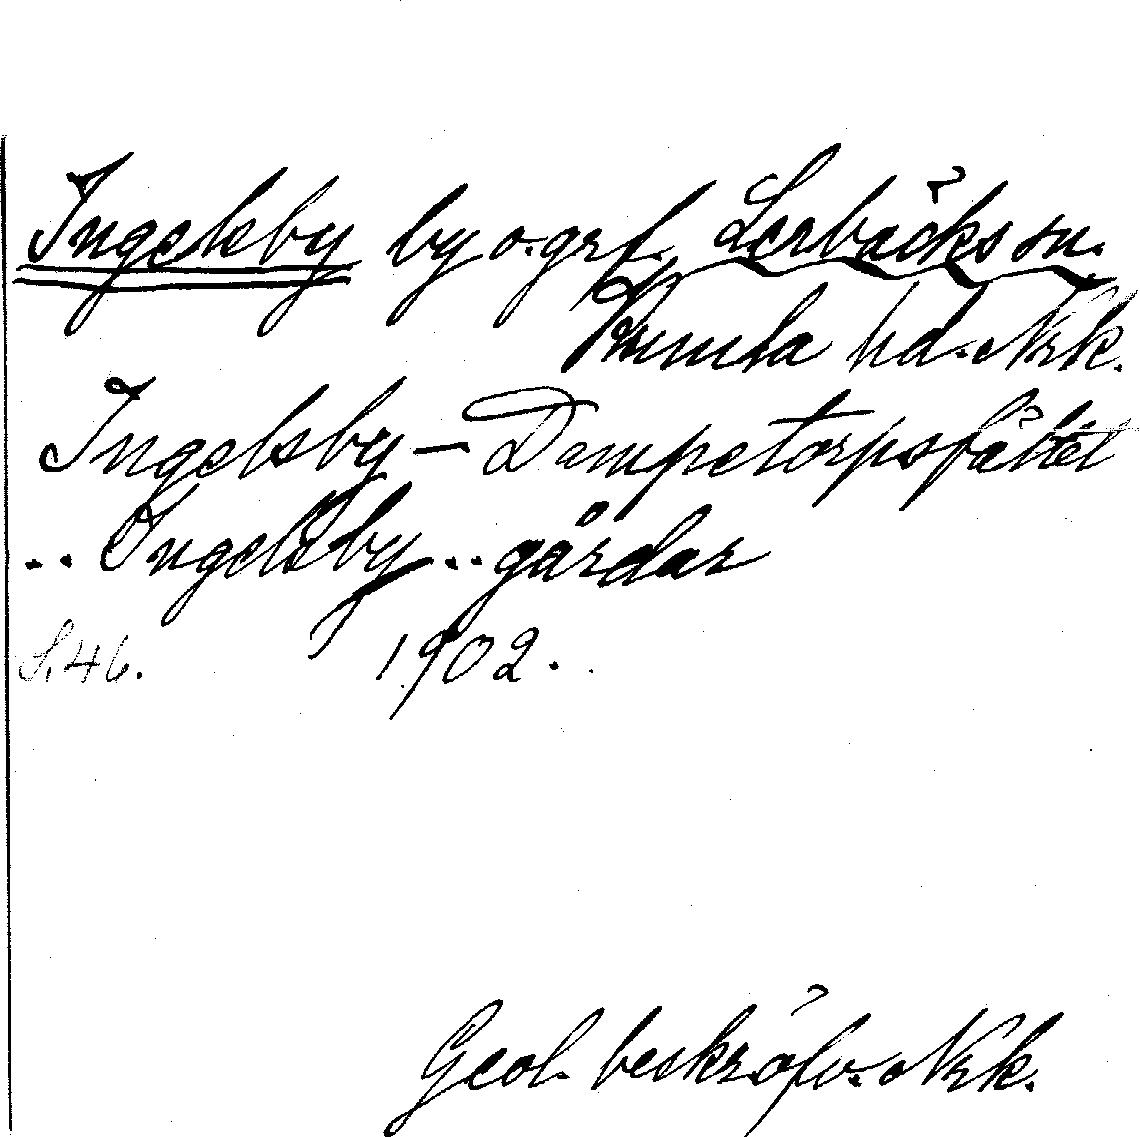 Ingelsby by o. grf. Lerbäcks sn.
Kumla hd. Nrk.
Ingelsby – Dampetorpsfältet
.. Ingelsby .. gårdar
S. 46. 1902.
Geol. beskr. öfv. Nrk.